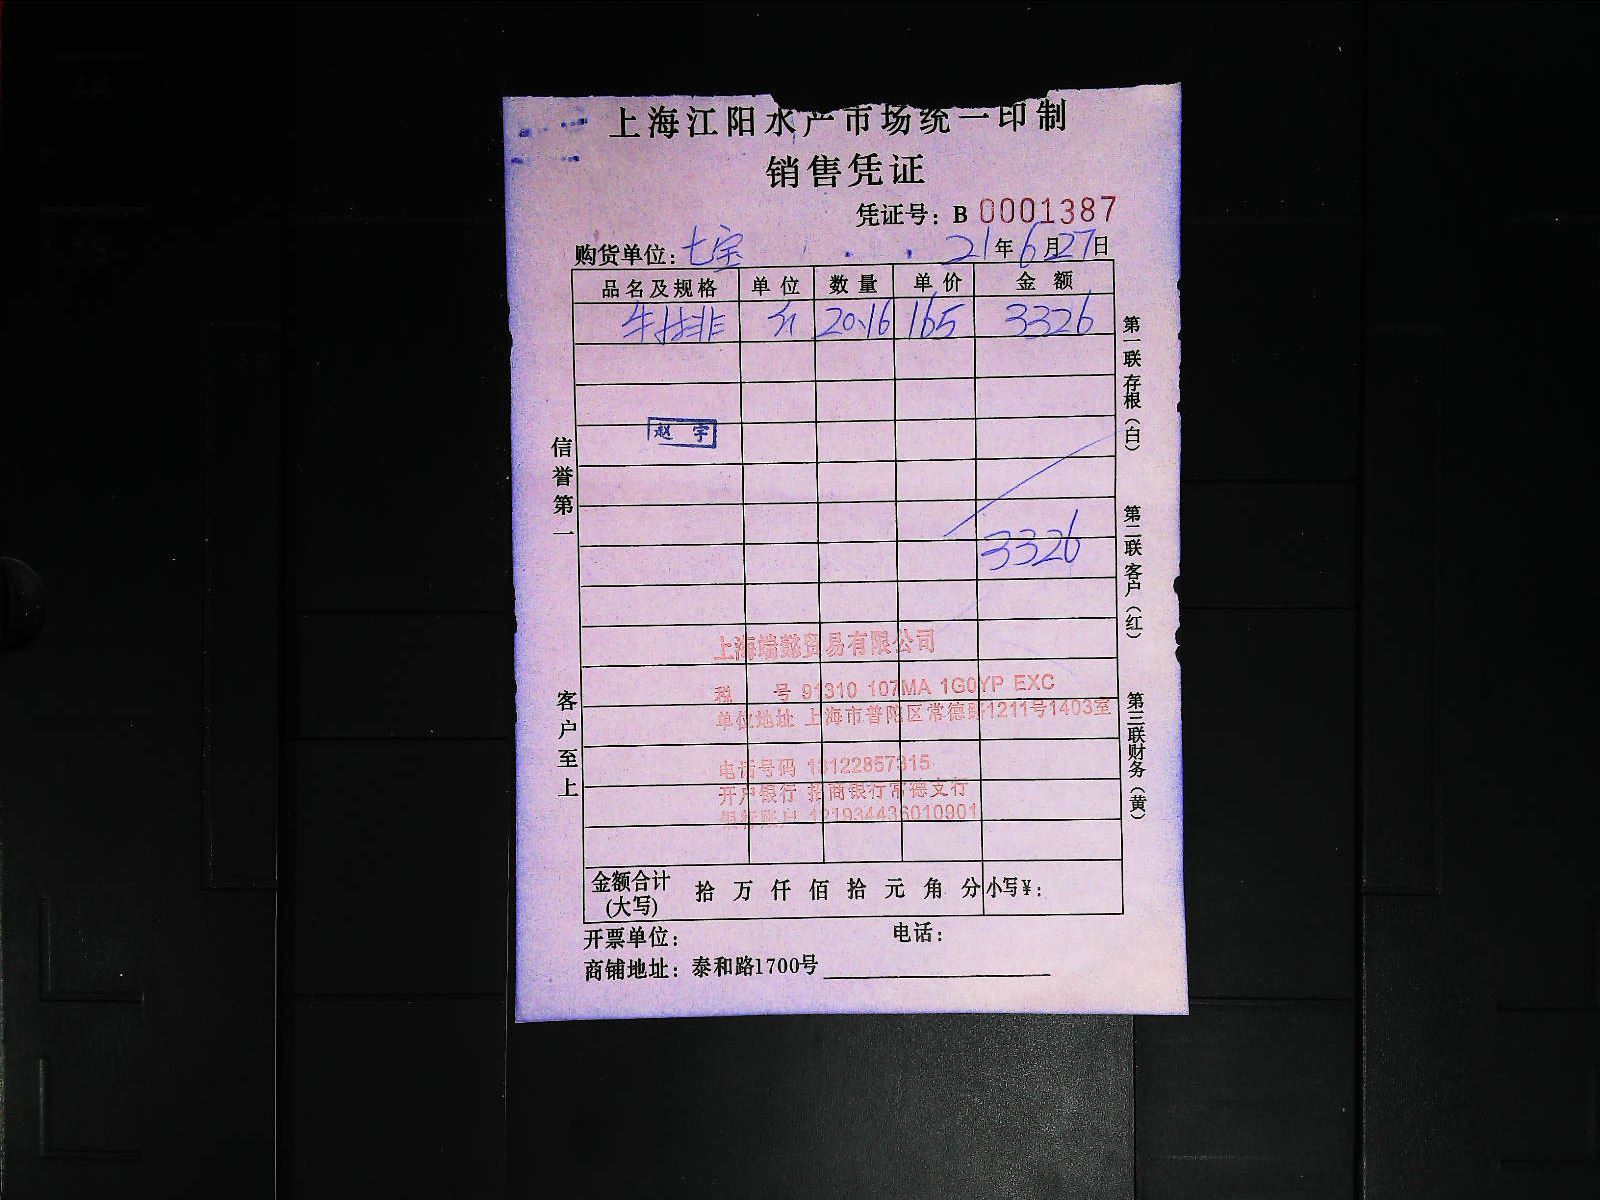 上海江阳水产市场统一印制
销售凭证
凭证号：B 0001387
购货单位：七宝 21年6月27日
品名及规格 单位 数量 单价 金额
牛排 斤 20.16 165 3326
赵宇
3326
上海端懿贸易有限公司
税 号 91310 107MA 1G0YP EXC
单位地址 上海市普陀区常德路1211号1403室
电话号码 13122857315
开户银行 招商银行常德支行
银行账户 121934436010901
金额合计(大写) 拾 万 仟 佰 拾 元 角 分 小写¥：
开票单位： 电话：
商铺地址：泰和路1700号
信誉第一
客户至上
第一联存根（白）
第二联客户（红）
第三联财务（黄）